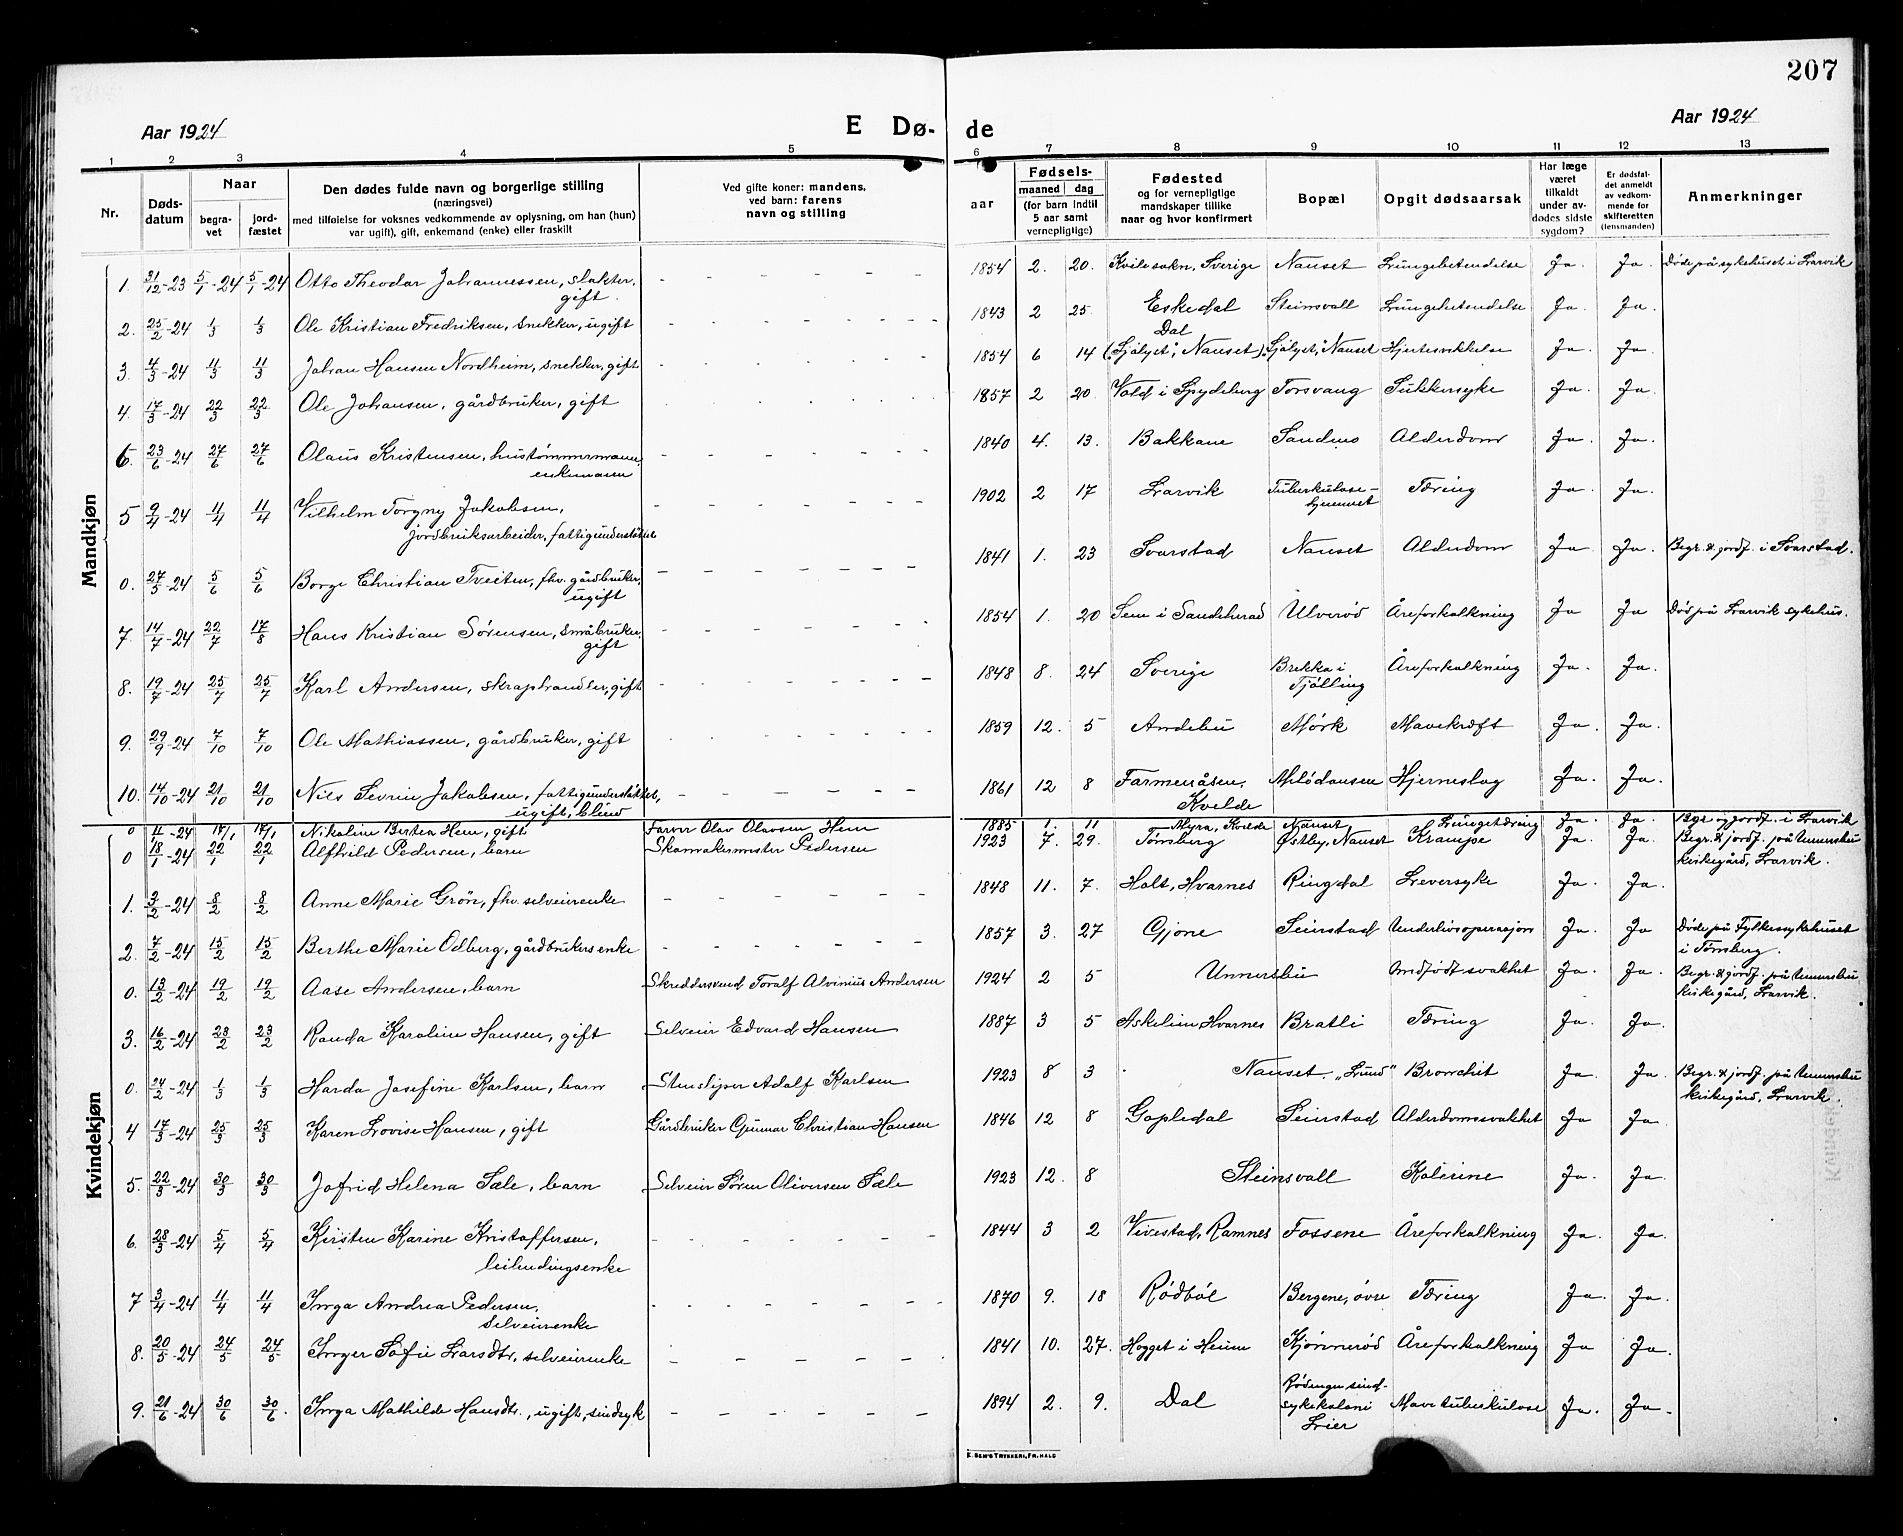 207
Aar 1924
E Dø-
de
Aar 1924
1 2 3 4 5 6 7 8 9 10 11 12 13
Nr.
Døds-
datum
Naar
begra-
vet
jord-
fæstet
Den dødes fulde navn og borgerlige stilling
(næringsvei)
med tilføielse for voksnes vedkommende av oplysning, om han (hun)
var ugift), gift, enkemand (enke) eller fraskilt
Ved gifte koner: mandens,
ved barn: farens
navn og stilling
Fødsels-
aar
maaned dag
(for barn indtil
5 aar samt
vernepligtige)
Fødested
og for vernepligtige
mandskaper tillike
naar og hvor konfirmert
Bopæl
Opgit dødsaarsak
Har læge
været
tilkaldt
under av-
dødes sidste
sygdom?
Er dødsfal-
det anmeldt
av vedkom-
mende for
skifteretten
(lensmanden)
Anmerkninger
Mandkjøn
1. 31/12-23 5/1-24 5/1-24 Otto Theodor Johannessen, slakter, gift. 1854 2. 20. Kvilesokn, Sverige Nanset Lungebetendelse Ja. Ja. Døde på sykehuset i Larvik
2. 25/2-24 1/3 1/3 Ole Kristian Fredriksen, snekker, ugift 1843 2 25. Eskedal Steinsvall Lungebetendelse Ja. Ja.
3. 4/3-24 11/3 11/3 Johan Hansen Nordheim, snekker, gift 1854 6 14 Dal ("Sjølyst", Nanset) "Sjølyst", Nanset Hjertesvikkelse Ja. Ja.
4. 17/3-24 22/3 22/3 Ole Johansen, gårdbruker, gift 1857 2 20 Vold i Spydeberg Torsvang Sukkersyke Ja. Ja.
6. 23/6-24 27/6 27/6 Olaus Kristensen, hustømmermann, enkemann 1840 4. 13. Bakkane Sandnes Alderdom Ja. Ja.
5 9/4-24 11/4 11/4 Vilhelm Torgny Jakobsen, jordbruksarbeider, fattigunderstøttet 1902 2 17 Larvik Tuberkulose-hjemmet Tæring Ja. Ja.
0. 27/5-24 5/6 5/6 Borge Christian Tveiten, fhv. gårdbruker, ugift 1841 1. 23 Svarstad Nanset Alderdom Ja Ja. Begr. & jordf. i Svarstad.
7. 14/7-24 22/7 17/8 Hans Kristian Sørensen, småbruker, gift 1854 1. 20 Sem i Sandeherad Ulverød Åreforkalkning Ja Ja Død på Larvik sykehus.
8. 19/7-24 25/7 25/7 Karl Andersen, skraphandler, gift 1848 8. 24 Sverige Brekka i Tjølling Åreforkalkning Ja. Ja.
9. 29/9-24 7/10 7/10 Ole Mathiassen, gårdbruker, gift 1859 12. 5 Andebu Mørk Mavekræft Ja. Ja.
10. 14/10-24 21/10 21/10 Nils Severin Jakobsen, fattigunderstøttet, ugift, blind 1861 12 8 Farmenåsen, Kvelde Mlødansen Hjerneslag Ja. Ja.
Kvindekjøn
0 11/1-24 17/1 17/1 Nikoline Bertea Hem, gift Farver Olav Olavsen Hem 1885 1. 11 Myra, Kvelde Nanset Lungetæring Ja. Ja. Bgr. og jordf. i Larvik
0 18/1-24 22/1 22/1 Alfhild Pedersen, barn Skomakermester Pedersen 1923 7. 29. Tønsberg Østby, Nanset Krampe Ja. Ja. Begr. & jordf. på Unnersbu kirkegård, Larvik.
1. 3/2-24 8/2 8/2 Anne Marie Grøn, fhv. selveierenke 1848 11. 7. Holt, Hvarnes Ringdal Leversyke Ja. Ja.
2. 7/2-24 15/2 15/2 Berthe Marie Odberg, gårdbrukers enke 1857 3. 27 Gjone Seierstad Underlivsoperasjon Ja. Ja Døde på Fylkessykehuset i Tønsberg.
0. 13/2-24 19/2 19/2 Aase Andersen, barn Skreddersvend Toralf Alvinius Andersen 1924 2 5 Unnersbu Medfødt svakhet Ja. Ja. Begr. & jordf. på Unnersbu kirkegård, Larvik.
3. 16/2-24 28/2 23/2 Randa Karoline Hansen, gift Selveier Edvard Hansen 1887 3 5 Askelien, Hvarnes Bratli Tæring Ja. Ja.
0. 24/2-24 1/3 1/3 Harda Josefine Karlsen, barn Stenslyver Adolf Karlsen 1923 8 3 Nanset. "Lund" Bronchit Ja. Ja. Begr. & jordf. på Unnersbu kirkegård, Larvik.
4 17/3-24 25/3 25/3 Karen Lovise Hansen, gift Gårdbruker Gunnar Christian Hansen 1846 12 8 Gopledal Seierstad Alderdomssvakhet Ja Ja
5. 22/3-24 30/3 30/3 Jofrid Helena Sæle, barn Selveier Søren Oliversen Sæle 1923 12. 8 Steinsvall Kolerine Ja. Ja.
6. 28/3-24 5/4 5/4 Kirsten Karine Kristoffersen, leilendingsenke 1844 3 2 Vivestad, Ramnes Fossene Åreforkalkning Ja. Ja.
7 3/4-24 11/4 11/4 Inga Andrea Pedersen, selveierenke 1870 9. 18 Rødbøl Bergene, øvre Tæring Ja. Ja.
8. 20/5-24 24/5 24/5 Inger Sofie Larsdtr., selveierenke 1841 10. 27. Hogget i Heum Kjønnerød Åreforkalkning Ja Ja.
9. 21/6-24 30/6 30/6. Inga Mathilde Hansdtr., ugift, sindsyk 1894 2. 9. Dal sindsykekoloni Lier Mavetuberkulose Ja. Ja.
E. SEM'S TRYKKERI, FR.HALD